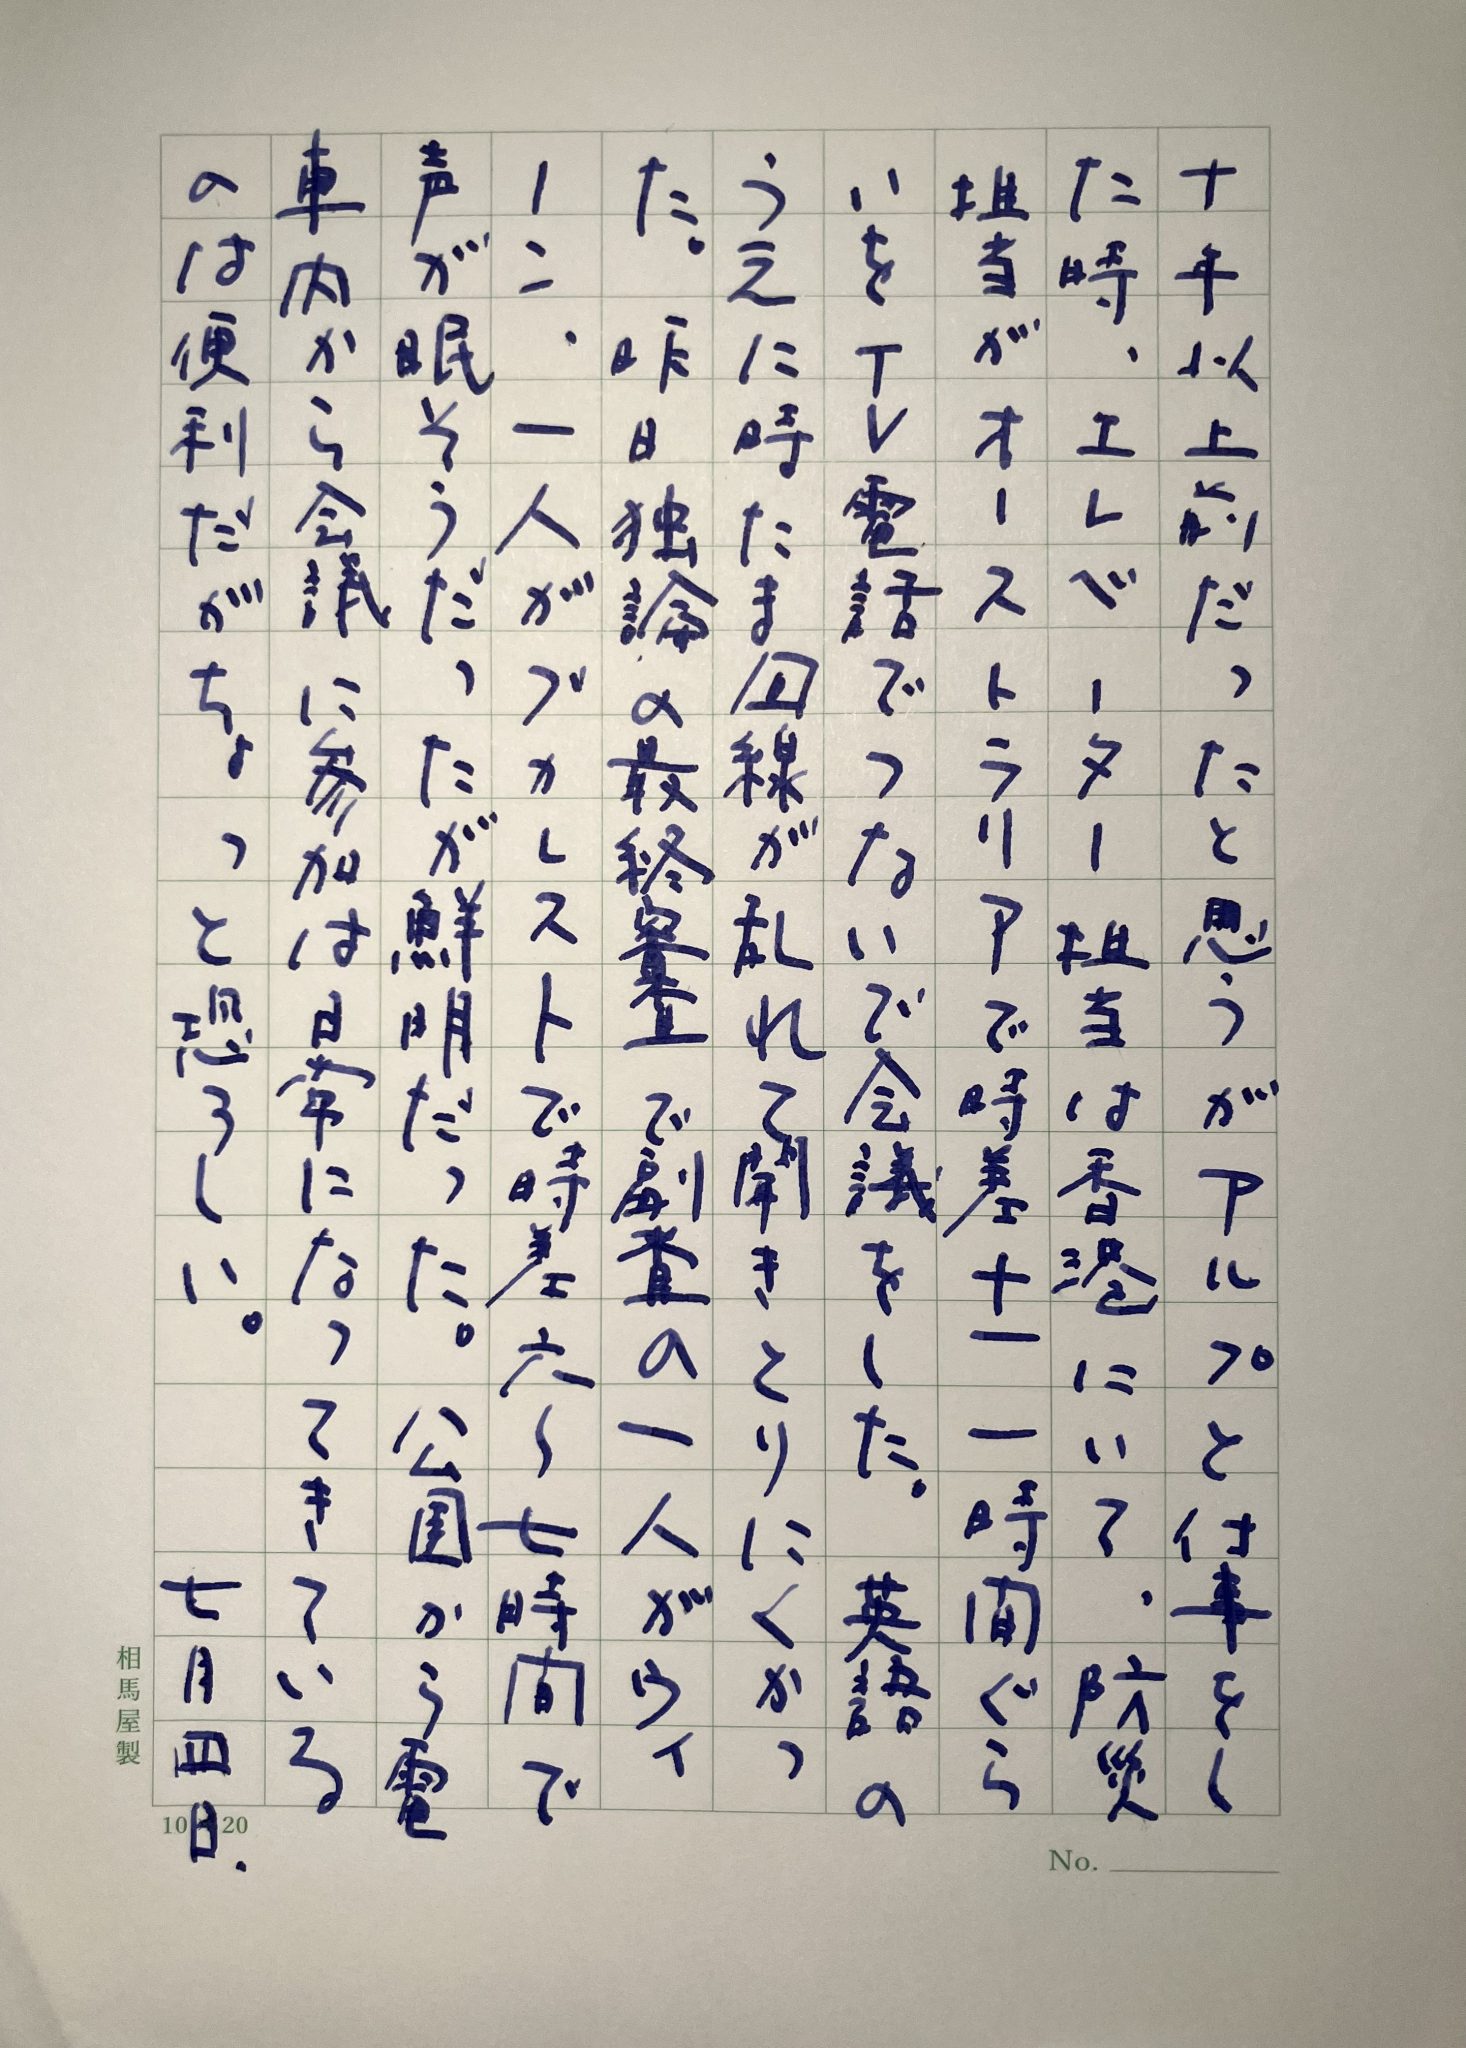 十年以上前だったと思うがアルプと仕事をし
た時、エレベーター担当は香港にいて、防災
担当がオーストラリアで時差十一時間ぐら
いをTV電話でつないで会議をした。英語の
うえに時たま回線が乱れて聞きとりにくかっ
た。昨日独論の最終審査で副査の一人がウィ
ーン、一人がブカレストで時差六〜七時間で
声が眠そうだったが鮮明だった。公園から電
車内から会議に参加は日常になってきている
のは便利だがちょっと恐ろしい。七月四日.
相馬屋製
10 20
No.